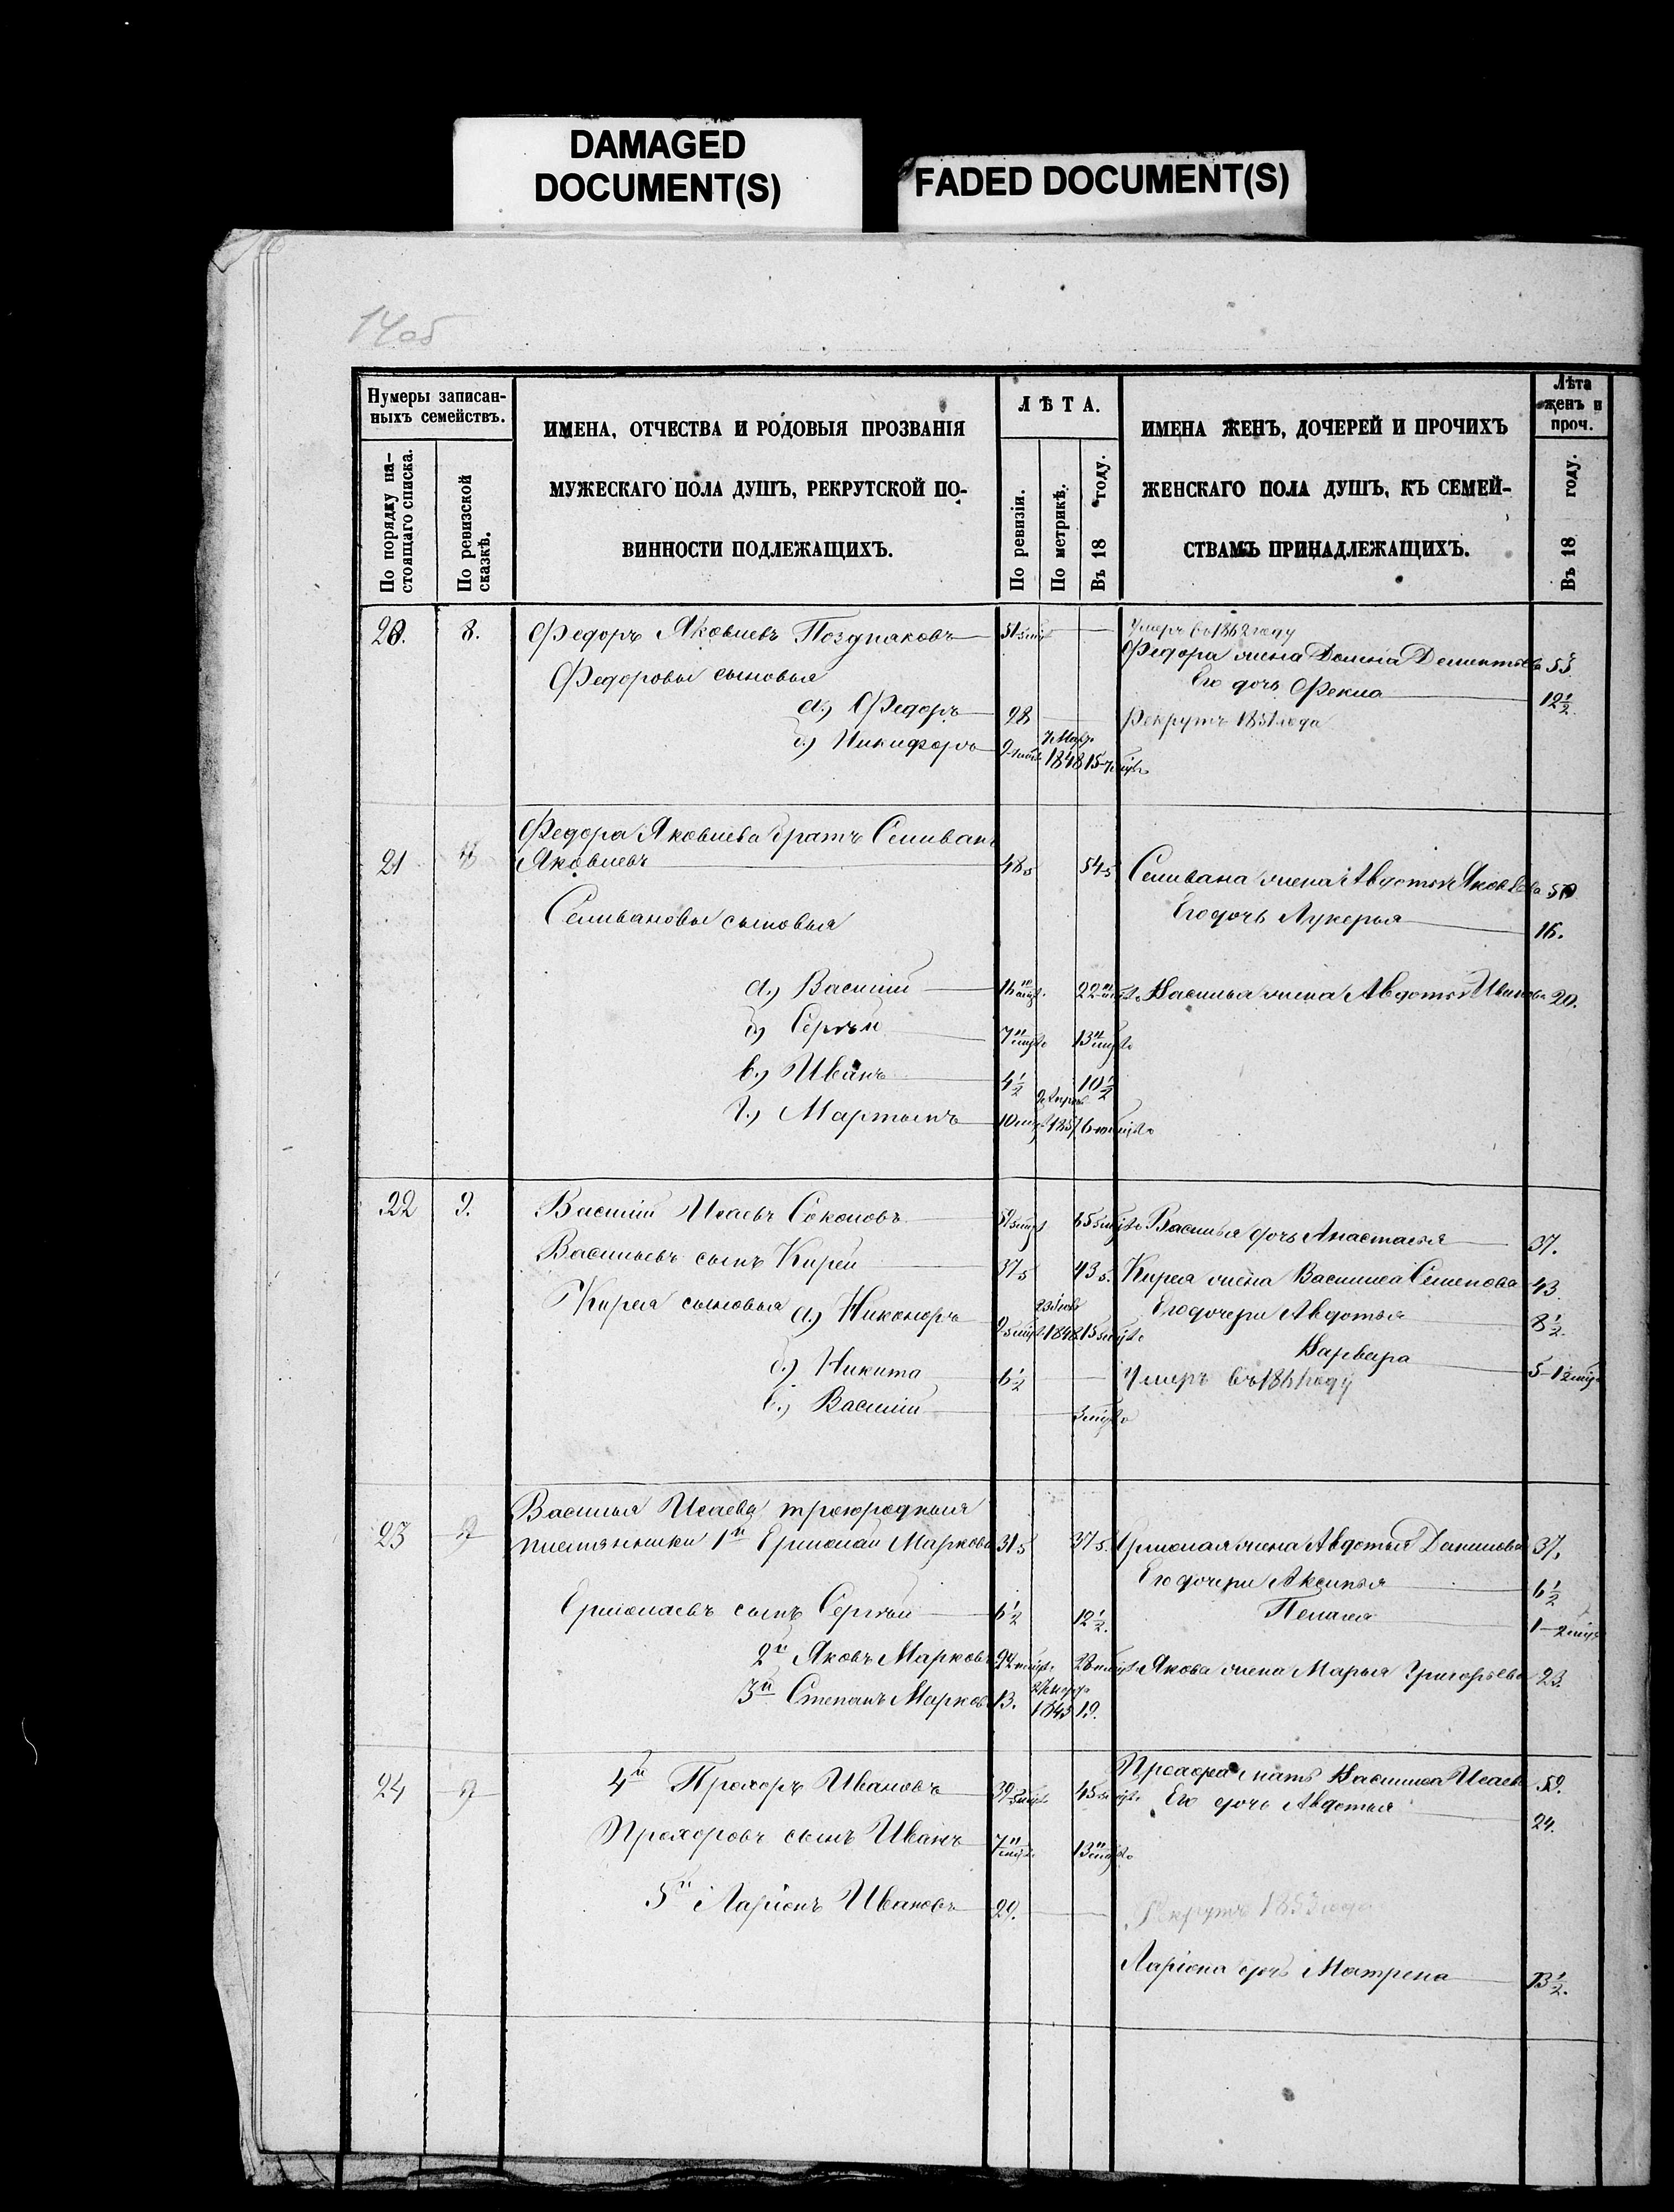 DAMAGED
DOCUMENT(S)
FADED DOCUMENT(S)
14об
Нумеры записан-
ныхъ семействъ.
По порядку на-
стоящаго списка.
По ревизской
сказкѣ.
ИМЕНА, ОТЧЕСТВА И РОДОВЫЯ ПРОЗВАНІЯ
МУЖЕСКАГО ПОЛА ДУШЪ, РЕКРУТСКОЙ ПО-
ВИННОСТИ ПОДЛЕЖАЩИХЪ.
ЛѢТА.
По ревизіи.
По метрикѣ.
Въ 18 году.
ИМЕНА ЖЕНЪ, ДОЧЕРЕЙ И ПРОЧИХЪ
ЖЕНСКАГО ПОЛА ДУШЪ, КЪ СЕМЕЙ-
СТВАМЪ ПРИНАДЛЕЖАЩИХЪ.
Лѣта
женъ и
проч.
Въ 18 году.
20. 8. Федоръ Яковлевъ Поздняковъ 51 Умеръ въ 1862 году
Федора жена Домна Дементьева 55
Федоровы сыновья Его дочь Фекла 12 1/2
а.) Федоръ 28 Рекрутъ 1851 года
б.) Никифоръ 9 1848 15
Федора Яковлева братъ Селиванъ
21 Яковлевъ 48 54 Селивана жена Авдотья Яковлева 50
Селивановы сыновья Его дочь Лукерья 16.
а.) Василій 16 22 Василья жена Авдотья Иванова 20.
б.) Сергѣй 7 13
в.) Иванъ 4 1/2 10 1/2
г.) Мартынъ 10 1857 6
22 9. Василій Исаевъ Соколовъ 59 65 Василья дочь Анастасья 37.
Васильевъ сынъ Кирей 37 43 Кирея жена Василиса Семенова 43
Кирея сыновья а.) Никоноръ 9 1848 15 Его дочери Авдотья 8 1/2
Варвара 5
б.) Никита 6 1/2 Умеръ въ 1861 году
в.) Василій
Василья Исаева троюродныя
23 9 племянники 1й Ермолай Марковъ 31 37 Ермолая жена Авдотья Данилова 37.
Его дочери Аксинья 6 1/2
Ермолаевъ сынъ Сергѣй 6 1/2 12 1/2. Пелагея 1
2й Яковъ Марковъ 22 28 Якова жена Марья Григорьева 23.
3й Степанъ Марковъ 13. 19.
24 9 4й Прохоръ Ивановъ 39 45 Прохора мать Василиса Исаева 59.
Его дочь Авдотья 24.
Прохоровъ сынъ Иванъ 7 13
5й Ларіонъ Ивановъ 29. Рекрутъ 1853 года
Ларіона дочь Матрена 13 1/2.